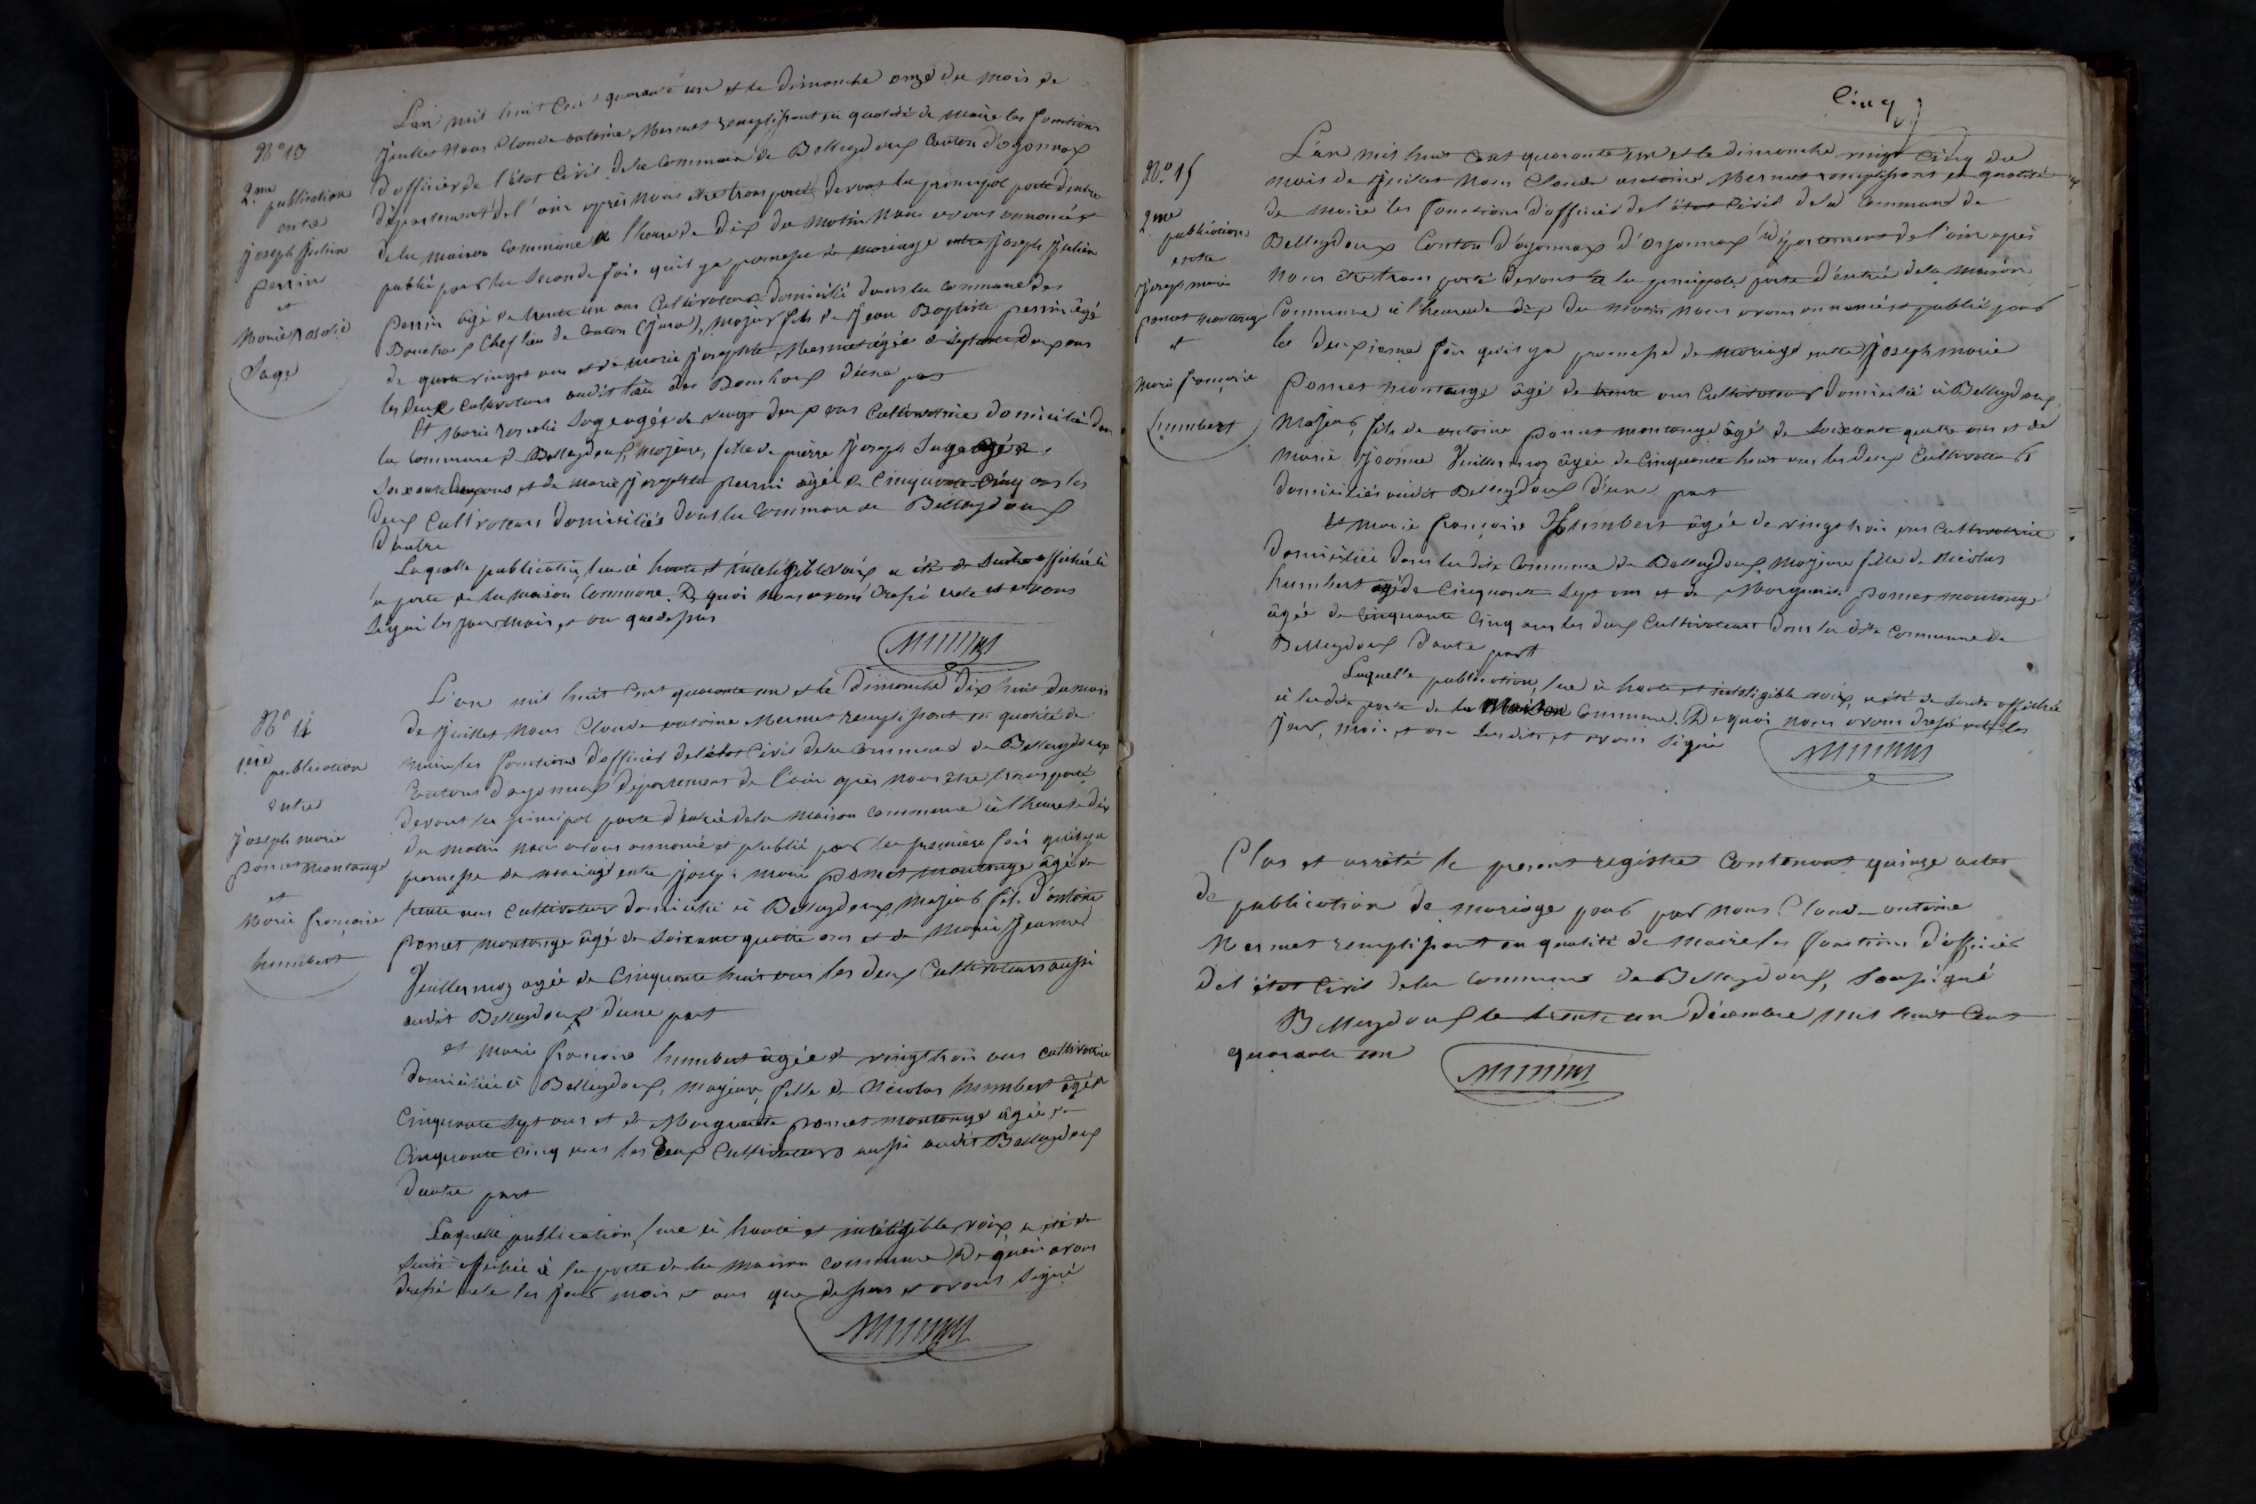 N° 13
2.me publication
entre
joseph julien
perrin
et
Marie Rosalie
Sage
L'an mil huit Cent quarante un et le dimanche onze du mois de
juillet Nous Claude antoine Mermet remplissant en qualité de maire les fonctions
d'officier de l'état Civil de la Commune de Belleydoux Canton d'oyonnax
département de l'ain après nous être transporté devant la principal porte d'entrée
de la maison Commune a l'heure de dix du matin Nous avons annoncé et
publié pour la Seconde fois qu'il y a promesse de mariage entre joseph julien
perrin âgé de trente un ans Cultivateur domicilié dans la commune des
Bouchoux Chef lieu de Canton (jura), Majeur fils de jean Baptiste perrin âgé
de quatre vingts ans et de marie josephte Mermet âgée de Septante deux ans
les deux Cultivateurs audit lieu des Bouchoux d'une part
Et Marie Rosalie Sage agée de vingt deux ans Cultivatrice domiciliée dans
la Commune de Belleydoux, majeure, fille de pierre joseph Sage âgé de
Soixante deux ans et de marie josephte perrin âgée de Cinquante Cinq ans les
deux Cultivateurs domiciliés dans la Commune de Belleydoux
d'autre
Laquelle publication, lue à haute et intelligible voix a été de Suite affichée à
la porte de la maison Commune. De quoi nous avons dressé acte et avons
Signé les jour mois, et an que dessus
N° 14
1.ère publication
entre
joseph marie
poncet montange
et
Marie françoise
humbert
L'an mil huit Cent quarante un et le dimanche dix huit du mois
de juillet Nous Claude antoine Mermet remplissant en qualité de
maire les fonctions d'officier de l'état Civil de la Commune de Belleydoux
Canton d'oyonnax département de l'ain après nous être transporté
devant la principal porte d'entrée de la maison Commune à l'heure de dix
du matin nous avons annoncé et publié pour la première fois qu'il y a
promesse de mariage entre joseph marie poncet montange âgé de
trente ans Cultivateur domicilié à Belleydoux, Majeur fils d'antoine
poncet montange âgé de Soixante quatre ans et de Marie jeanne
Vuillermoz agée de Cinquante huit ans les deux Cultivateurs aussi
audit Belleydoux d'une part
et marie francoise humbert âgée de vingt trois ans cultivatrice
domiciliée à Belleydoux, majeure, fille de Nicolas humbert âgé de
Cinquante Sept ans et de Marguerite poncet montange âgée de
Cinquante Cinq ans les deux Cultivateurs aussi audit Belleydoux
d'autre part
Laquelle publication, lue à haute et intelligible voix, a été de
Suite affichée à la porte de la maison commune De quoi avons
dressé acte les jour mois et ans que dessus et avons signé
Cinq
N.° 15
2.me
publication
entre
joseph marie
poncet montange
et
Marie françoise
humbert
L'an mil huit Cent quarante un et le dimanche vingt Cinq du
mois de juillet Nous Claude antoine Mermet remplissant en qualité
de maire les fonctions d'officier de l'état Civil de la Commune de
Belleydoux Canton d'oyonnax d'oyonnax département de l'ain après
nous être transporté devant la principale porte d'entrée de la maison
Commune à l'heure de dix du matin nous avons annoncé et publié pour
la deuxieme fois qu'il y a promesse de mariage entre joseph marie
poncet montange âgé de trente ans Cultivateur domicilié à Belleydoux
Majeur, fils de antoine poncet montange âgé de Soixante quatre ans et de
Marie jeanne Vuillermoz âgée de Cinquante huit ans les deux Cultivateurs
domiciliés audit Belleydoux d'une part
Et marie françoise Humbert âgée de vingt trois ans Cultivatrice
domiciliée dans la dite Commune de Belleydoux, majeure fille de Nicolas
humbert agé de Cinquante Sept ans et de Marguerite poncet montange
âgée de Cinquante Cinq ans les deux Cultivateurs dans la dite Commune de
Belleydoux d'autre part
Laquelle publication, lue à haute et intelligible voix, a été de Suite affichée
à la dite porte de la Maison Commune. De quoi nous avons dressé acte les
jour, mois et an Susdits et avons Signé
Clos et arrêté le present registre Contenant quinze actes
de publication de mariage pour par nous Claude antoine
Mermet remplissant en qualité de maire les fonctions d'officier
de l'état Civil de la Commune de Belleydoux, Soussigné
Belleydoux le trente un Décembre mil huit Cent
quarante un